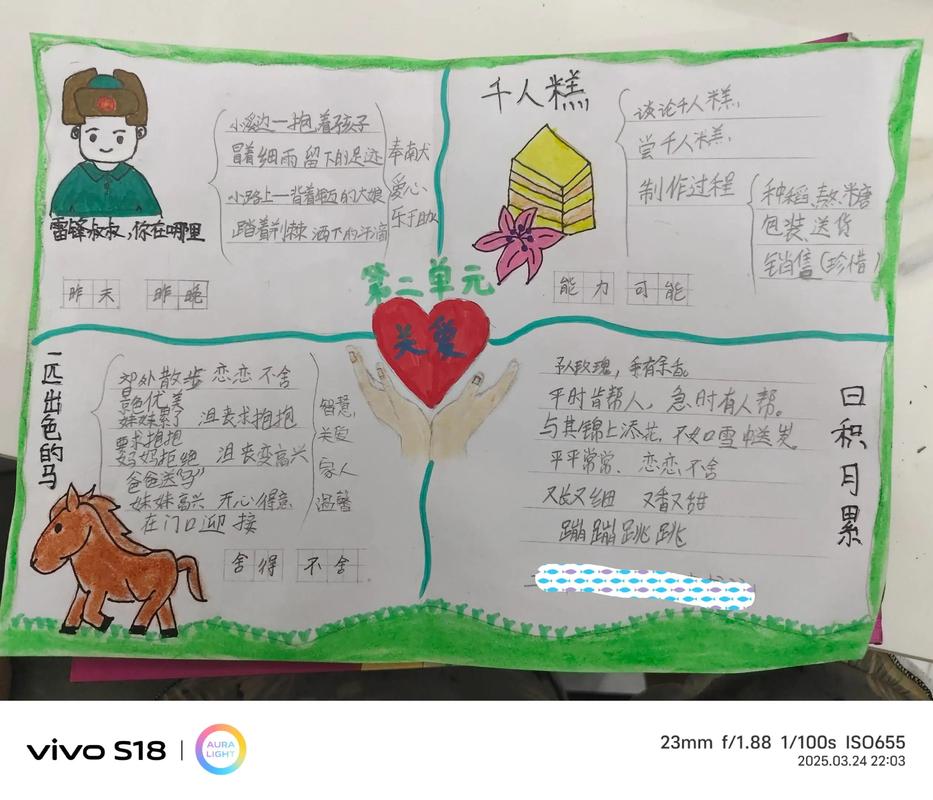 小溪边一抱着孩子
冒着细雨 留下的足迹
小路上一背着年迈的大娘
踏着荆棘 洒下的汗滴
奉献
爱心
乐于助
雷锋叔叔,你在哪里
昨天 昨晚
千人糕
谈论千人糕,
尝千人糕,
制作过程
种稻、熬米糖
包装 送货
销售(珍惜)
能力 可能
第二单元
关爱
一匹出色的马
郊外散步 恋恋不舍
景色优美
妹妹累了 沮丧求抱抱
要求抱抱
妈妈拒绝 沮丧变高兴
爸爸送"马"
妹妹高兴 开心得意
在门口迎接
智慧,
关爱
家人
温馨
舍得 不舍
日积月累
予人玫瑰,手有余香。
平时肯帮人,急时有人帮。
与其锦上添花,不如雪中送炭
平平常常、恋恋不舍
又长又细 又香又甜
蹦蹦跳跳
vivo S18
AURA LIGHT
23mm f/1.88 1/100s ISO655
2025.03.24 22:03